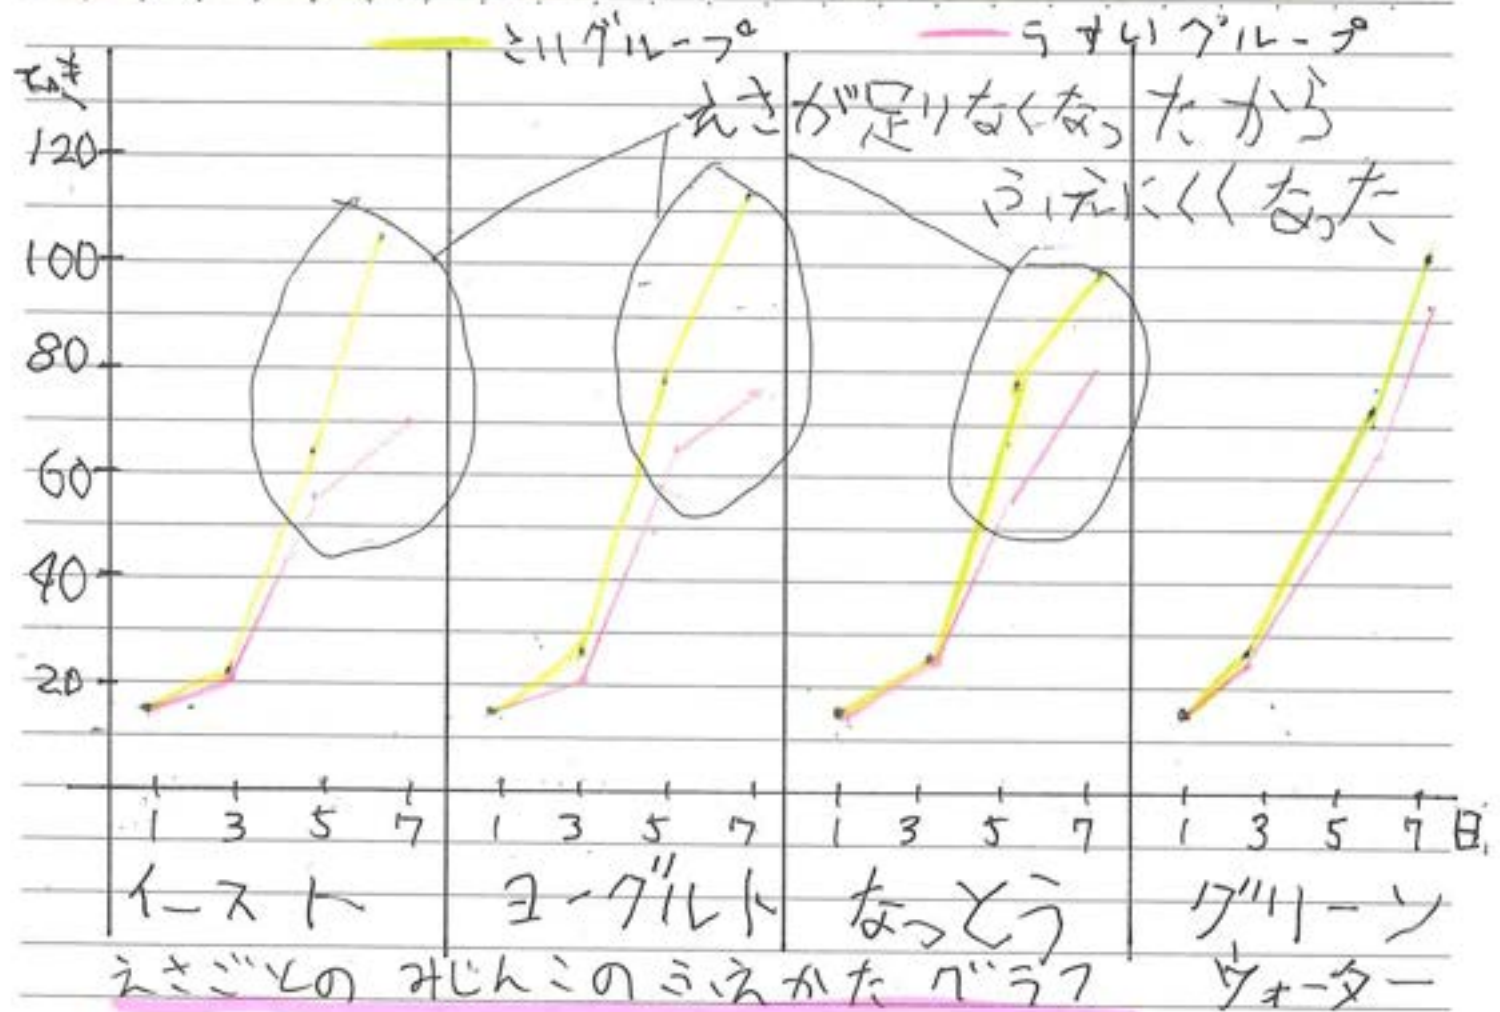 こいグループ うすいグループ
ひき
えさが足りなくなったから
ふえにくくなった
120
100
80
60
40
20
1 3 5 7 1 3 5 7 1 3 5 7 1 3 5 7 日
イースト ヨーグルト なっとう グリーン
ウォーター
えさごとの みじんこのふえかた グラフ